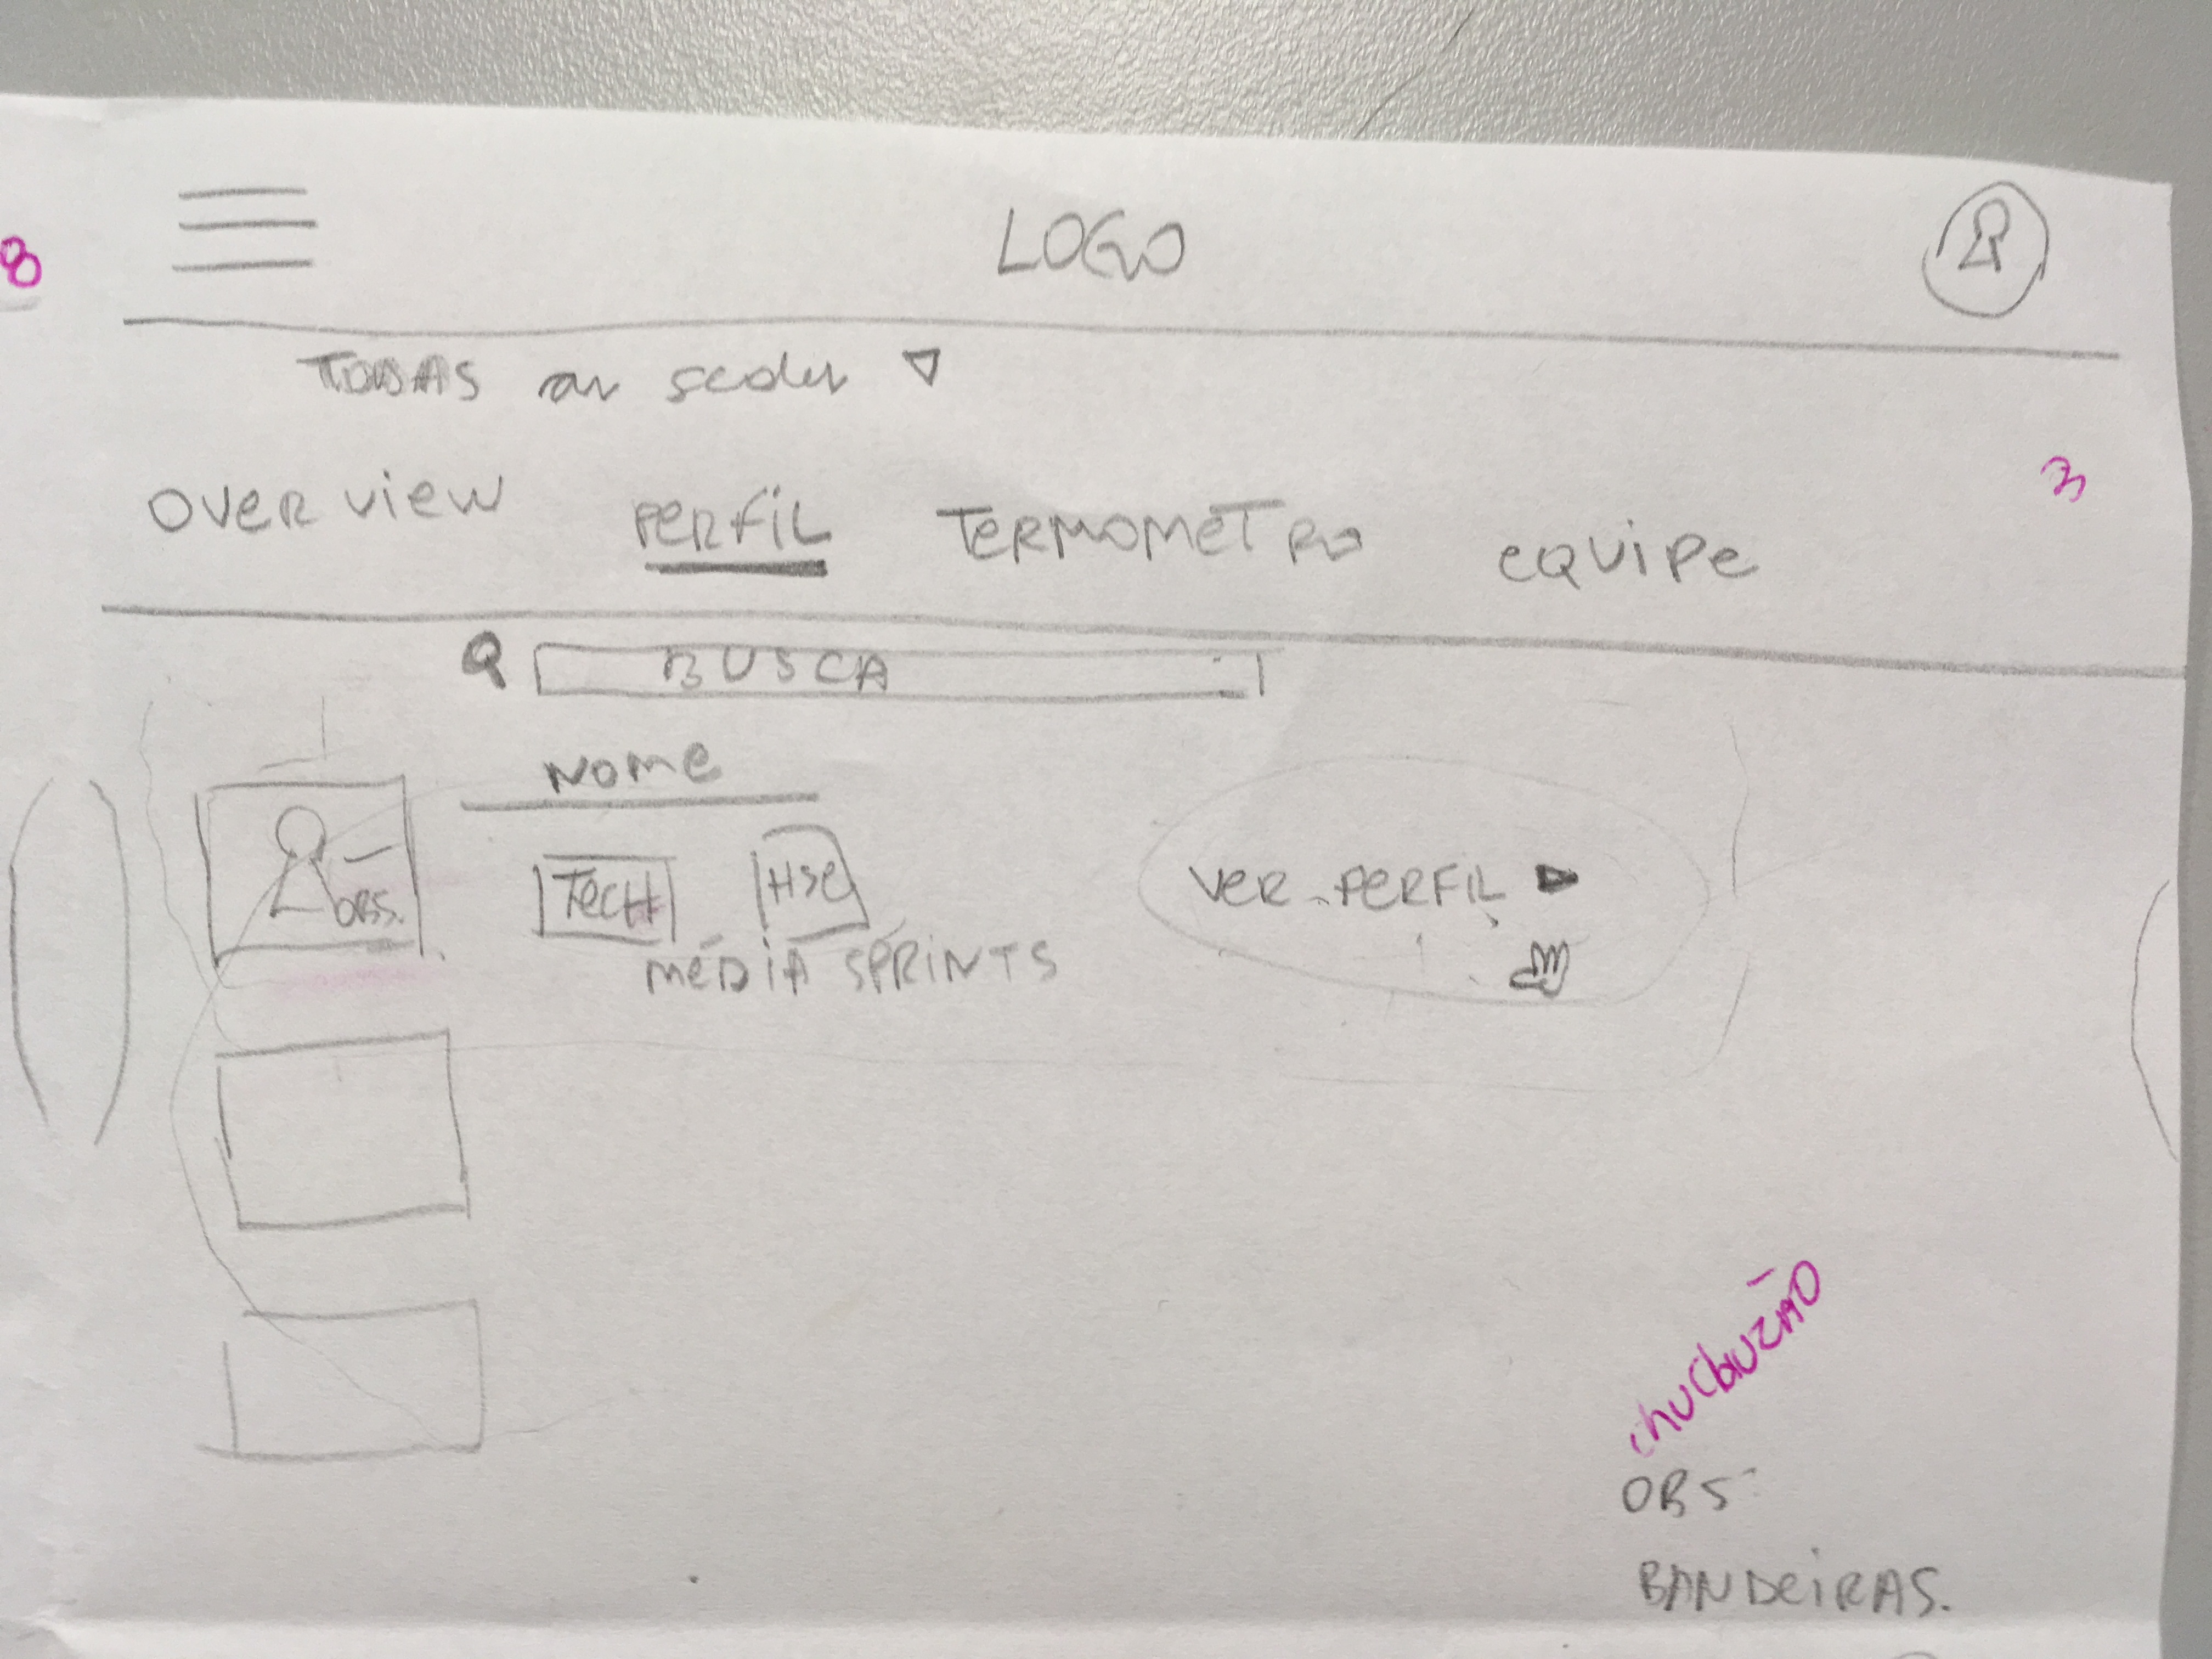 8
LOGO
TODAS as sedes
3
OVERVIEW PERFIL TERMOMETRO equipe
BUSCA
NOME
OBS. TECH HSE
MÉDIA SPRINTS
VER PERFIL
OBS:
BANDEIRAS.